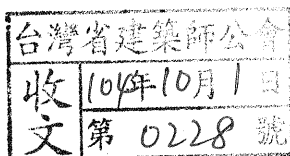 台灣省建築師公會
收文
104年10月1日
第 0228 號